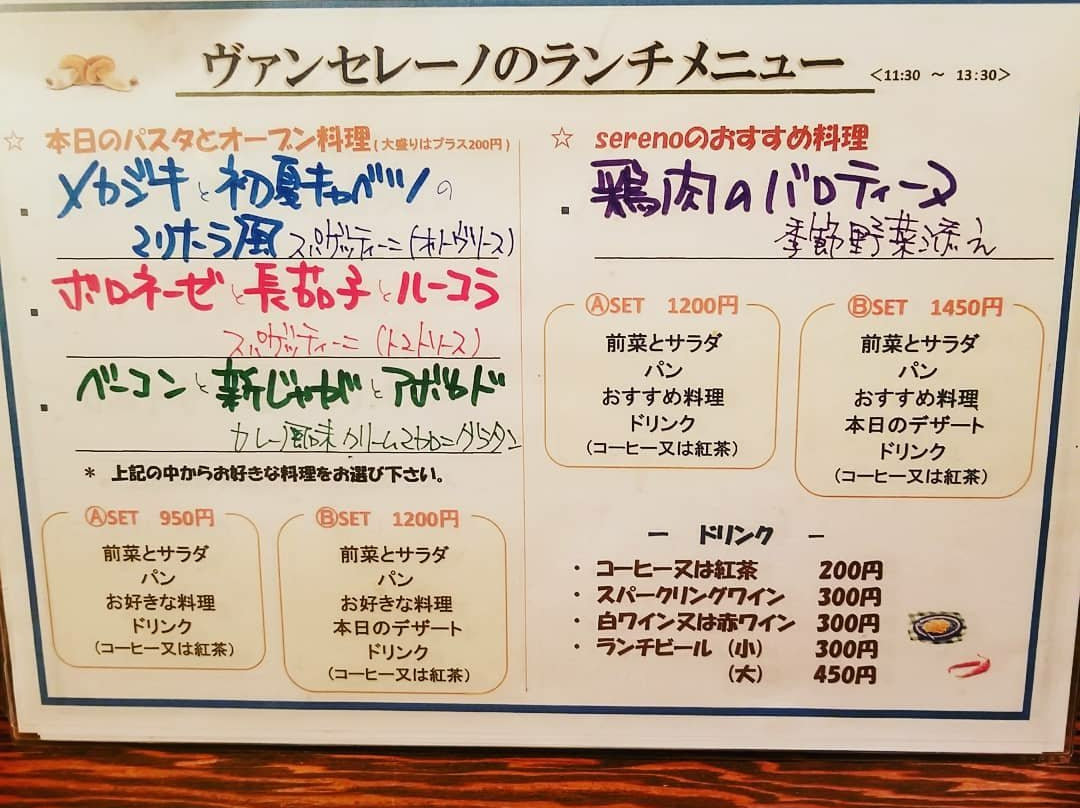 ヴァンセレーノのランチメニュー <11:30 ～ 13:30>
☆ 本日のパスタとオーブン料理(大盛りはプラス200円)
▪ メカジキと初夏キャベツの
マリナーラ風 スパゲッティーニ(オイルソース)
▪ ボロネーゼと長茄子とルーコラ
スパゲッティーニ (トマトソース)
▪ ベーコンと新じゃがとアボカド
カレー風味クリームマカロニグラタン
* 上記の中からお好きな料理をお選び下さい。
ⒶSET 950円
前菜とサラダ
パン
お好きな料理
ドリンク
(コーヒー又は紅茶)
ⒷSET 1200円
前菜とサラダ
パン
お好きな料理
本日のデザート
ドリンク
(コーヒー又は紅茶)
☆ serenoのおすすめ料理
▪ 鶏肉のバロティーヌ
季節野菜添え
ⒶSET 1200円
前菜とサラダ
パン
おすすめ料理
ドリンク
(コーヒー又は紅茶)
ⒷSET 1450円
前菜とサラダ
パン
おすすめ料理
本日のデザート
ドリンク
(コーヒー又は紅茶)
— ドリンク —
・ コーヒー又は紅茶 200円
・ スパークリングワイン 300円
・ 白ワイン又は赤ワイン 300円
・ ランチビール (小) 300円
(大) 450円